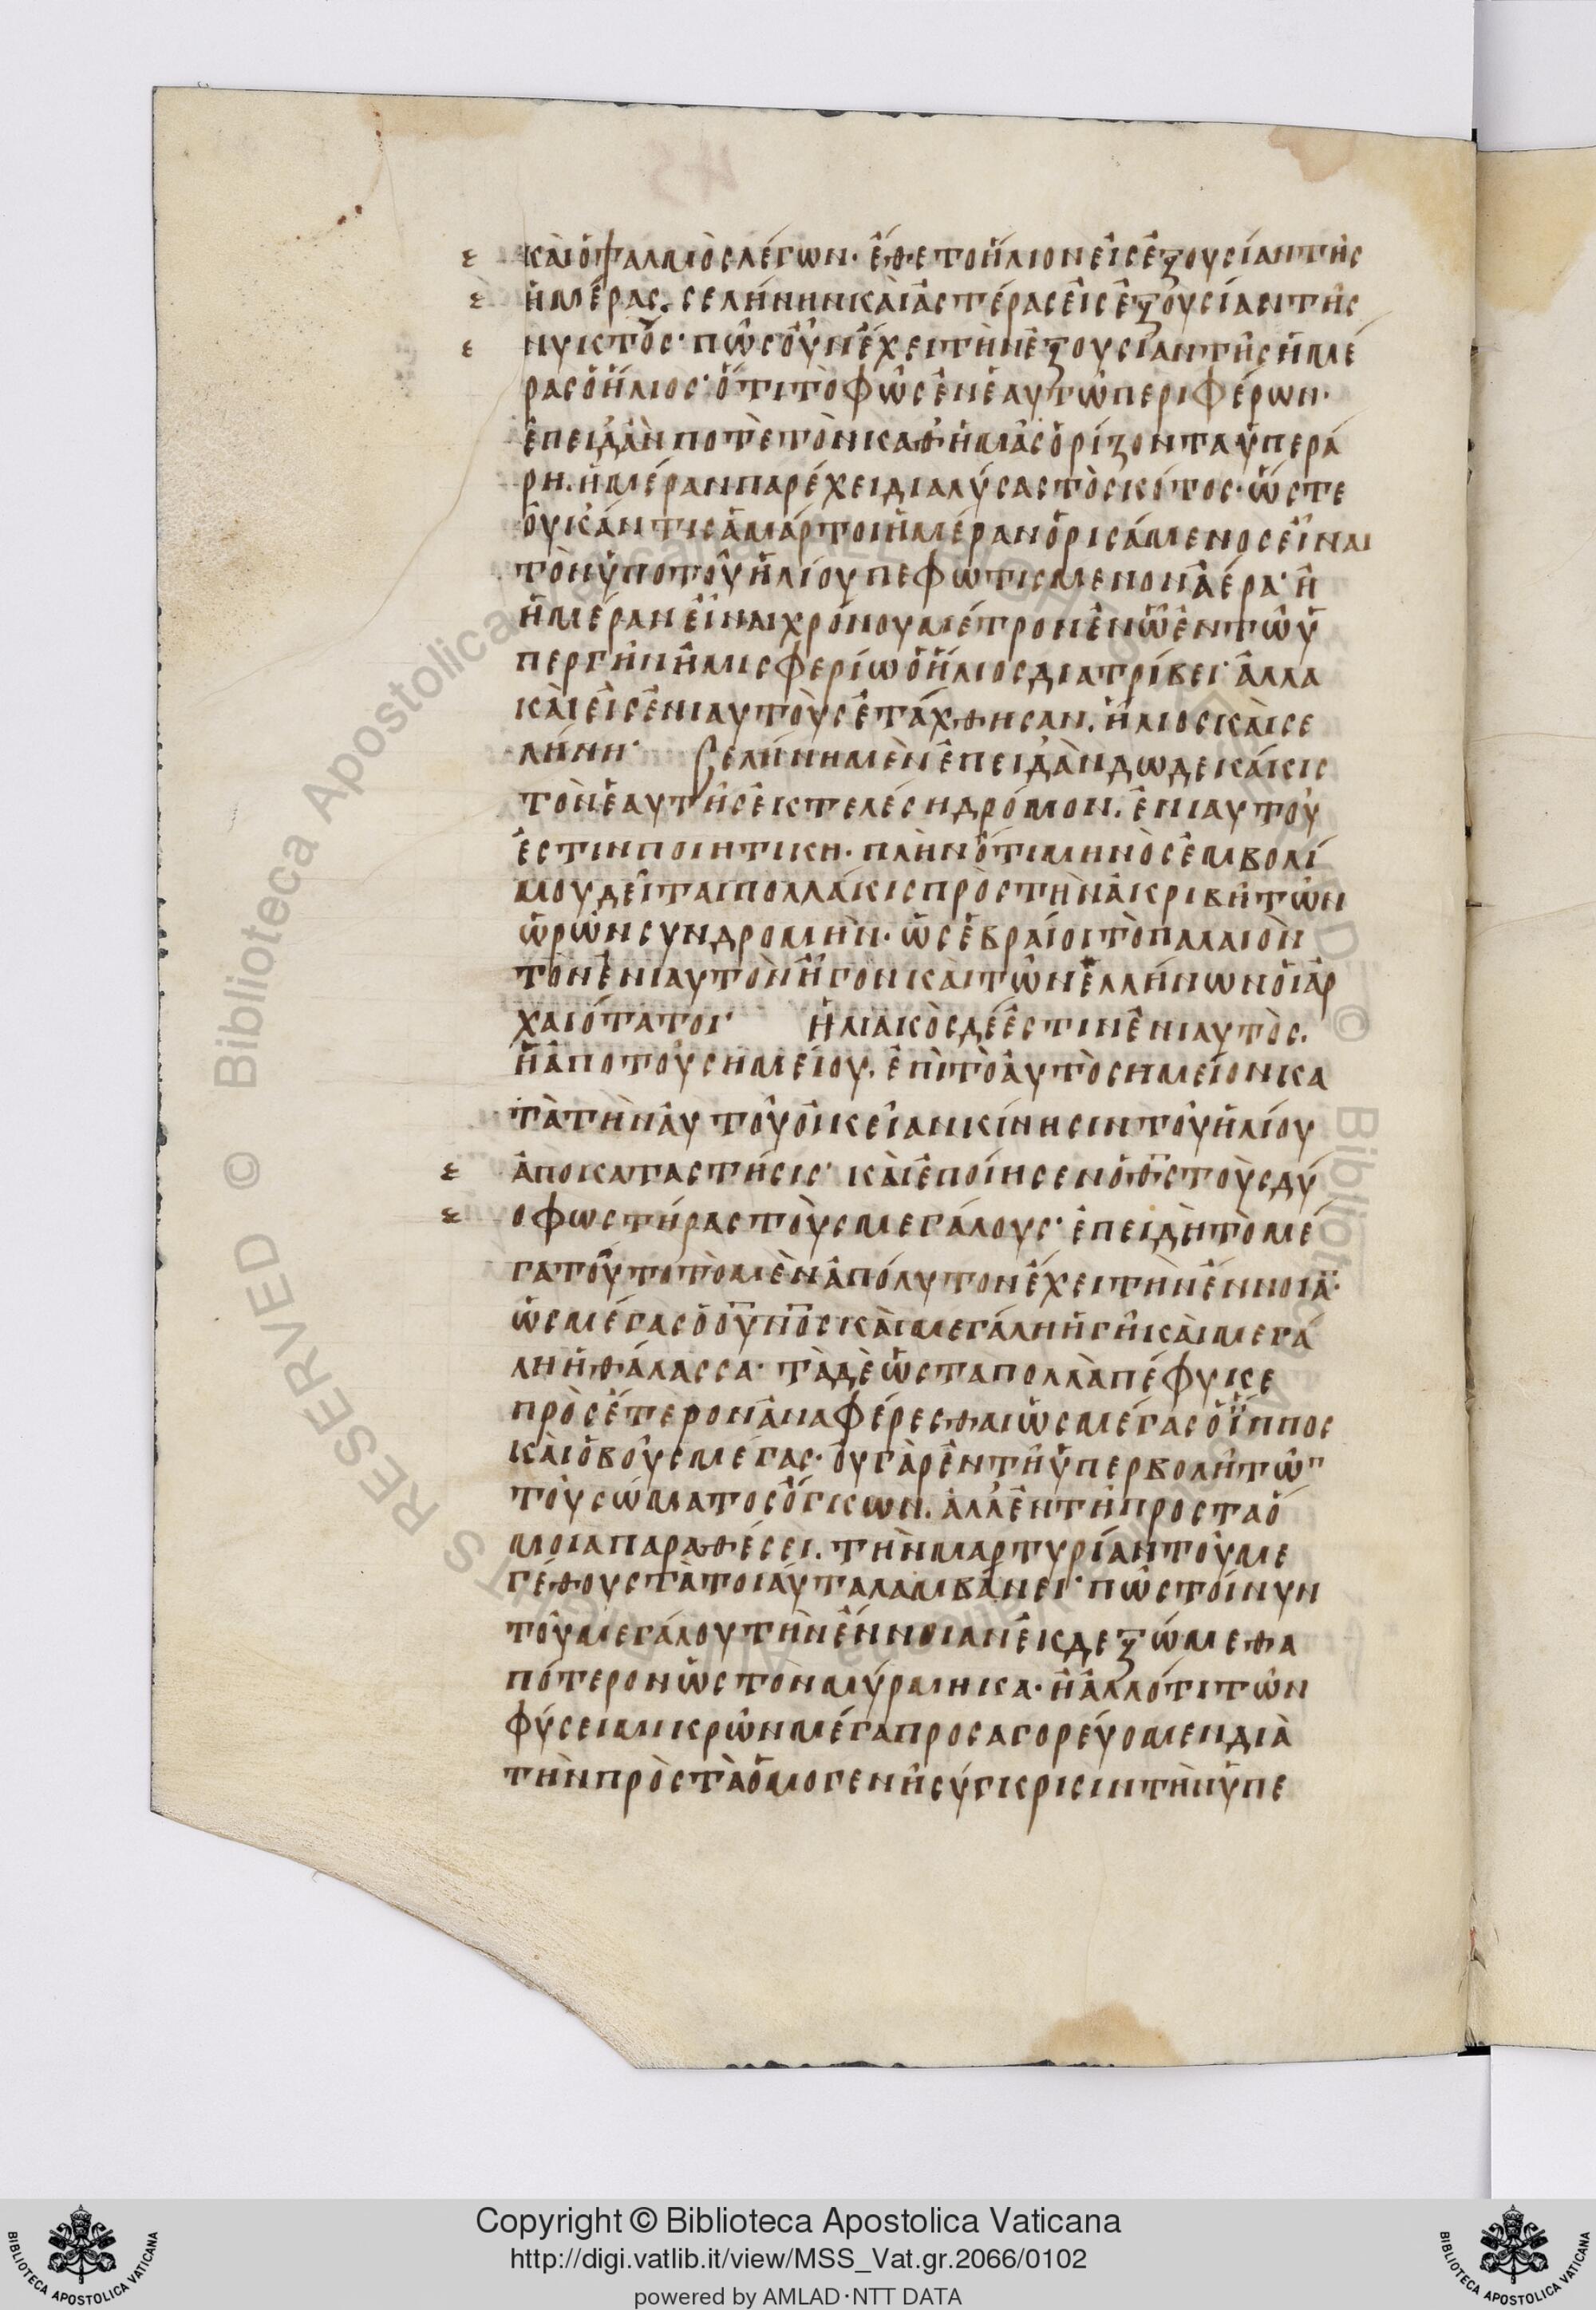 καὶ ὁ ψαλμὸς λέγων· ἔθετο ἥλιον εἰς ἐξουσίαν τῆς
ἡμέρας. σελήνην καὶ ἀστέρας εἰς ἐξουσίαν τῆς
νυκτός· πῶς οὖν ἔχει τὴν ἐξουσίαν τῆς ἡμέ
ρας ὁ ἥλιος· ὅτι τὸ φῶς ἐν ἑαυτῶ περιφέρων·
ἐπειδὰν ποτὲ τὸν καθ ἡμᾶς ὁρίζοντα ὑπερά
ρη. ἡμέραν παρέχει διαλύσας τὸ σκότος· ὥστε
οὐκ ἄν τις ἁμάρτοι ἡμέραν ὁρισάμενος εἶναι
τὸν ὑπο τοῦ ἡλίου πεφωτισμενον ἀέρα· ἢ
ἡμέραν εἶναι χρόνου μέτρον ἐν ὧ ἐν τῶ ὑ
περ γῆν ἡμισφερίω ὁ ἥλιος διατρίβει· ἀλλα
καὶ εἰς ἐνιαυτοὺς ἐτάχθησαν. ἥλιος καὶ σε
λήνη· Σελήνη μὲν ἐπειδὰν δωδεκάκις
τὸν ἑαυτῆς ἐκτελέση δρόμον. ἐνιαυτοῦ
ἐστιν ποιητικη· πλὴν ὅτι μηνὸς ἐμβολί
μου δεῖται πολλάκις πρὸς τὴν ἀκριβῆ τῶν
ὡρῶν συνδρομὴν· ὡς ἑβραίοι τὸ παλαιὸν
τὸν ἐνιαυτὸν ἦγον καὶ τῶν ἑλλήνων οἱ ἀρ
χαιότατοι· ἡλιακὸς δέ ἐστιν ἐνιαυτὸς.
ἡ ἀπο τοῦ σημείου. ἐπὶ τὸ ἀυτὸ σημείον κα
τὰ τὴν ἀυτοῦ οἰκείαν κίνησιν τοῦ ἡλίου
ἀποκαταστήσις· καὶ ἐποίησεν ὁ θς τοὺς δύ
ο φωστήρας τοὺς μεγάλους· ἐπειδὴ τὸ μέ
γα τοῦτο τὸ μὲν ἀπόλυτον ἔχει τὴν ἔννοιαν·
ὡς μέγας ὁ ουνος καὶ μεγάλη ἡ γῆ καὶ μεγά
λη ἡ θάλασσα· τὰ δὲ ὡς τα πολλὰ πέφυκε
πρὸς ἕτερον ἀναφέρεσθαι ὡς μέγας ὁ ἵππος
καὶ ὁ βοῦς μέγας· οὐ γὰρ ἐν τῆ ὑπερβολῆ τῶν
τοῦ σώματος ὄγκων. ἀλλ ἐν τῆ προς τα ὅ
μοια παραθέσει. τὴν μαρτυρίαν τοῦ με
γέθους τὰ τοιαύτα λαμβάνει· πῶς τοίνυν
τοῦ μεγάλου τὴν ἔννοιαν ἐκδεξώμεθα
πότερον ὡς τὸν μύρμηκα· ἢ ἄλλό τι τῶν
φύσει μικρῶν μέγα προσαγορεύομεν διὰ
τὴν πρὸς τὰ ὁμογενῆ σύγκρισιν τὴν ὑπε
Copyright © Biblioteca Apostolica Vaticana
http://digi.vatlib.it/view/MSS_Vat.gr.2066/0102
powered by AMLAD·NTT DATA
BIBLIOTECA APOSTOLICA VATICANA
BIBLIOTECA APOSTOLICA VATICANA